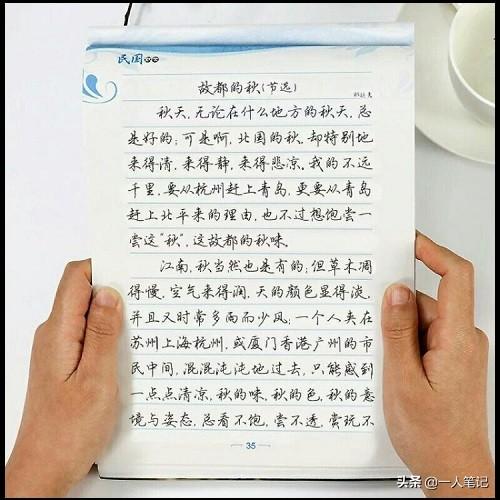 民国
故都的秋(节选)
郁达夫
秋天,无论在什么地方的秋天,总
是好的;可是啊,北国的秋,却特别地
来得清,来得静,来得悲凉。我的不远
千里,要从杭州赶上青岛,更要从青岛
赶上北平来的理由,也不过想饱尝一
尝这“秋”,这故都的秋味。
江南,秋当然也是有的;但草木凋
得慢,空气来得润,天的颜色显得淡,
并且又时常多雨而少风;一个人夹在
苏州上海杭州,或厦门香港广州的市
民中间,混混沌沌地过去,只能感到
一点点清凉,秋的味,秋的色,秋的意
境与姿态,总看不饱,尝不透,赏玩不
35
头条@一人笔记